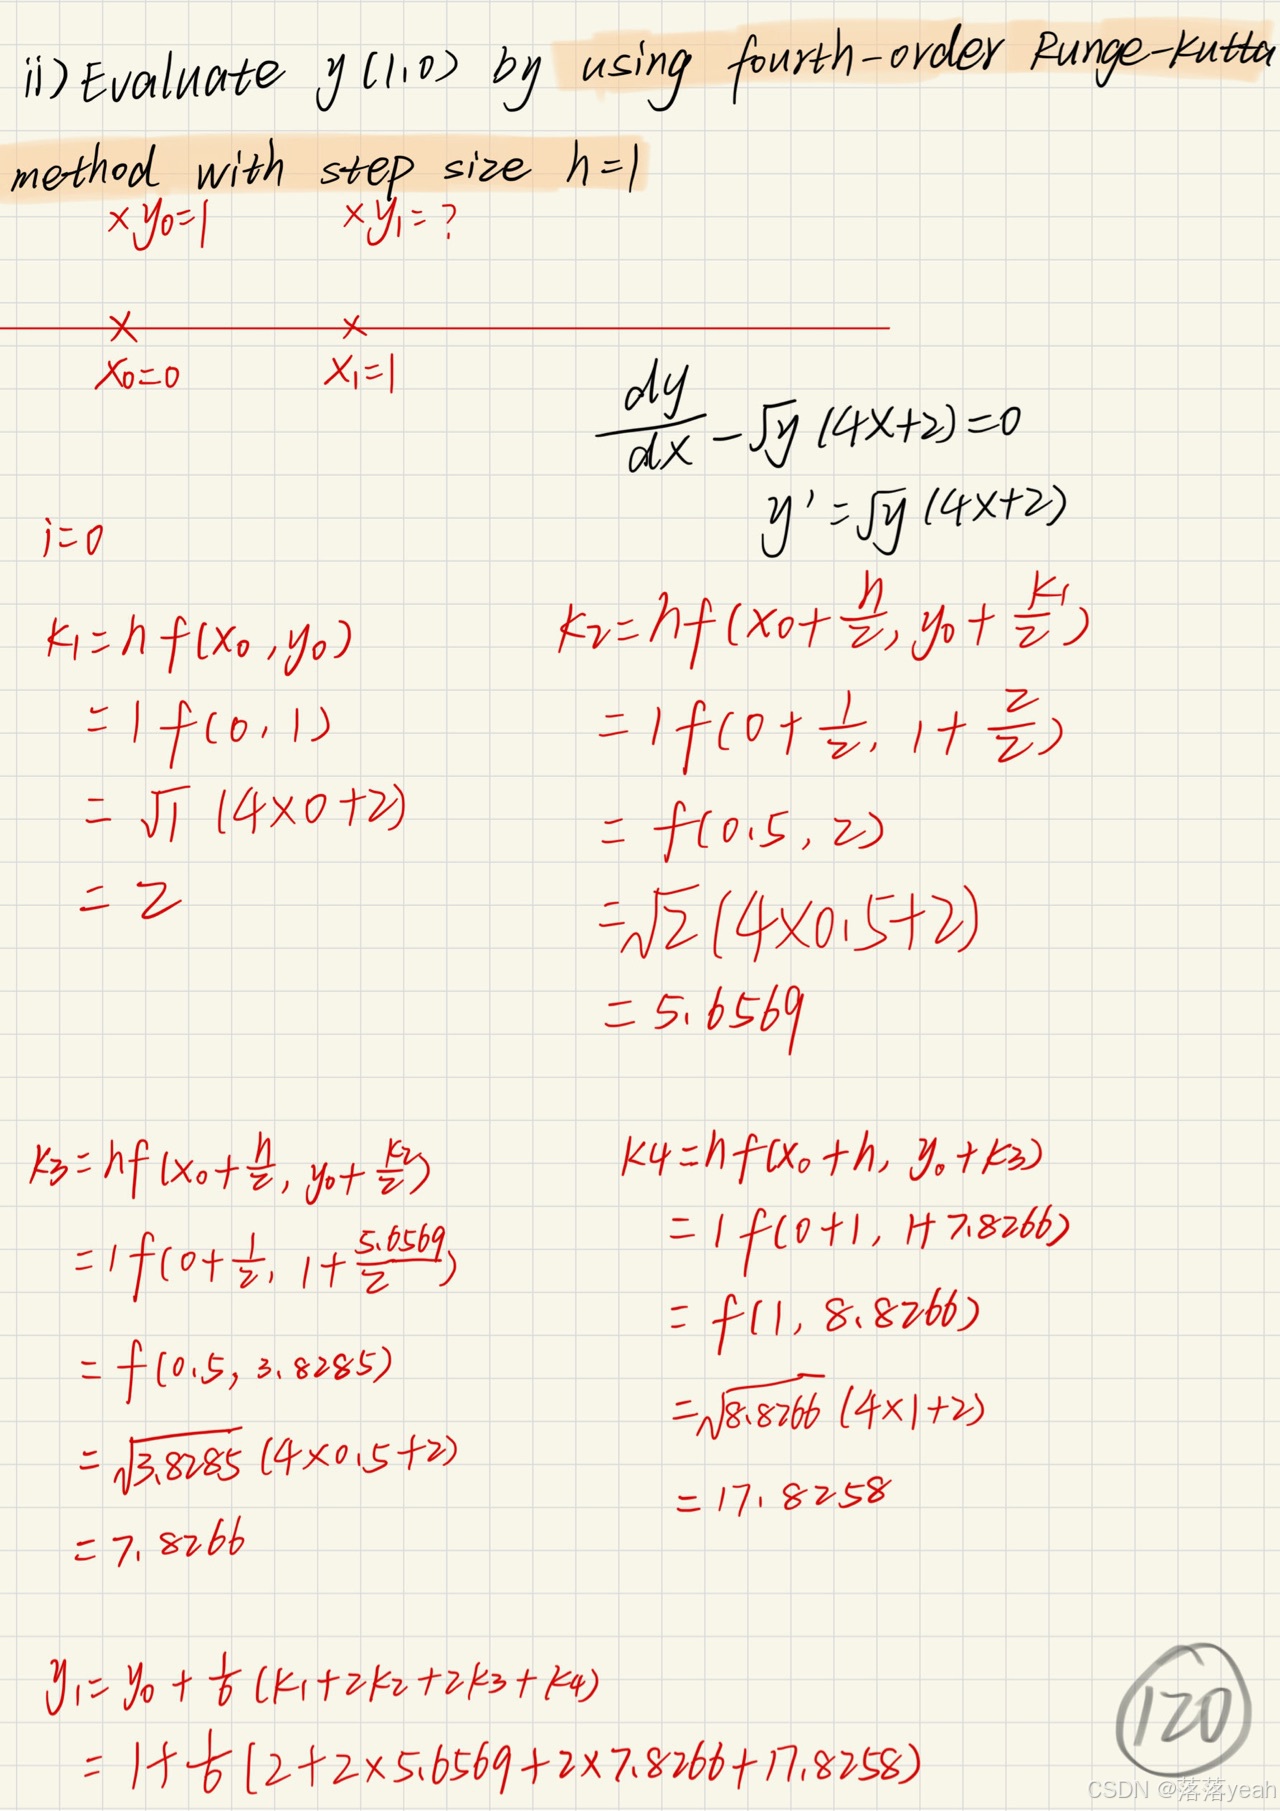 ii) Evaluate y(1.0) by using fourth-order Runge-Kutta
method with step size h=1
× y₀=1 × y₁=?
× ×
x₀=0 x₁=1
dy/dx - √y (4x+2)=0
y' = √y (4x+2)
i=0
k₁=hf(x₀,y₀)
=1f(0,1)
=√1 (4×0+2)
=2
k₂=hf(x₀+h/2, y₀+k₁/2)
=1f(0+1/2, 1+2/2)
=f(0.5, 2)
=√2(4×0.5+2)
=5.6569
k₃=hf(x₀+h/2, y₀+k₂/2)
=1f(0+1/2, 1+5.6569/2)
=f(0.5, 3.8285)
=√3.8285 (4×0.5+2)
=7.8266
k₄=hf(x₀+h, y₀+k₃)
=1f(0+1, 1+7.8266)
=f(1, 8.8266)
=√8.8266 (4×1+2)
=17.8258
y₁=y₀+1/6(k₁+2k₂+2k₃+k₄)
=1+1/6(2+2×5.6569+2×7.8266+17.8258)
120
CSDN @落落yeah